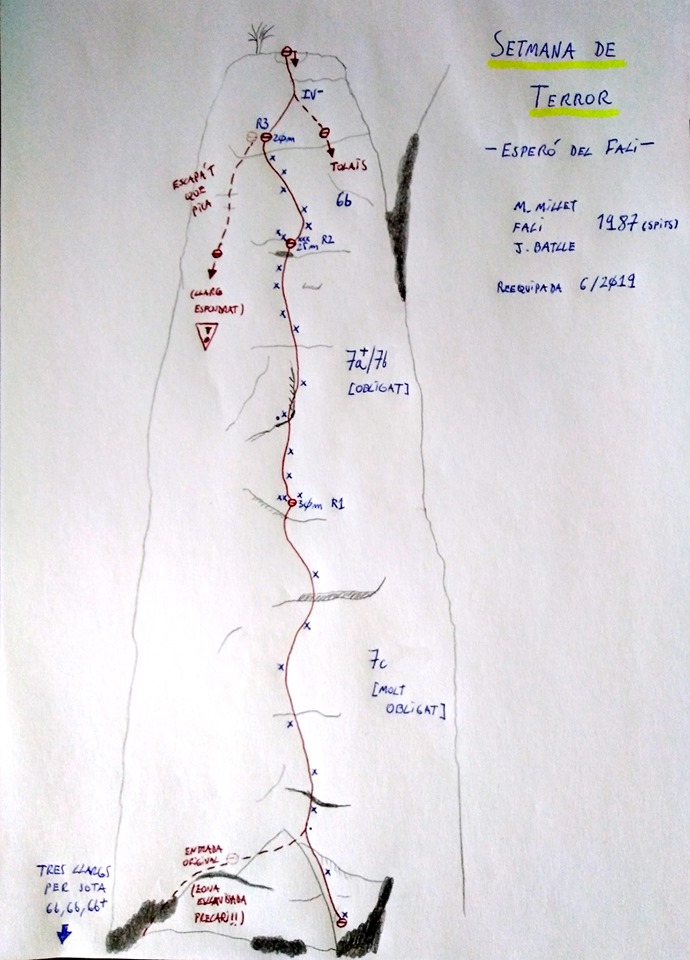 SETMANA DE
TERROR
- ESPERÓ DEL FALI -
M. MILLET
FALI
J. BATLLE
1987 (SPITS)
REEQUIPADA 6/2019
IV-
R3
20m
TOLAÏS
ESCAPA'T
QUE
PICA
6b
25m R2
(LLARG
ESPONDRAT)
7a+/7b
[OBLIGAT]
30m R1
7c
[MOLT
OBLIGAT]
ENTRADA
ORIGINAL
(ZONA
PRECARI!!!)
TRES LLARGS
PER SOTA
6b, 6b, 6b+